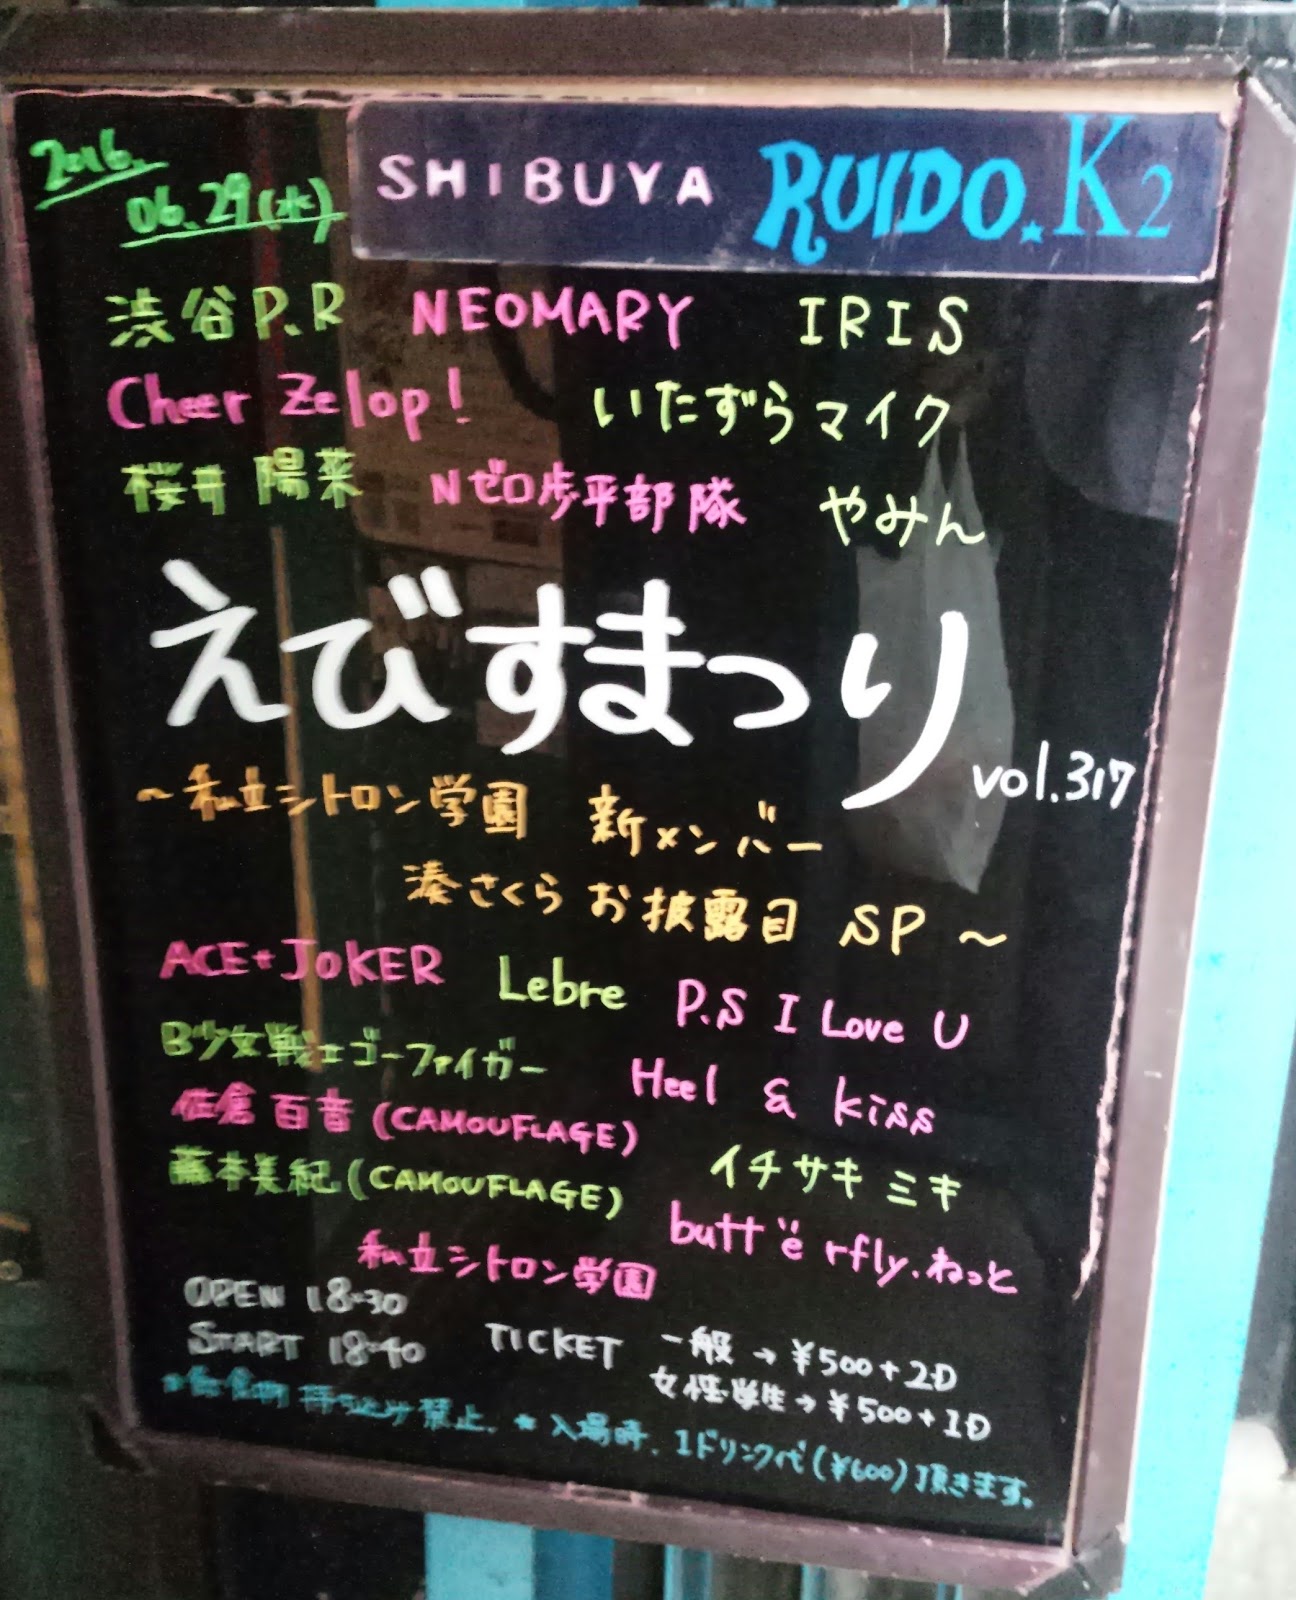 2016.
06.29(水)
SHIBUYA RUIDO.K2
渋谷P.R NEOMARY IRIS
Cheer Zelop! いたずらマイク
桜井 陽菜 Nゼロ歩平部隊 やみん
えびすまつり vol.317
～私立シトロン学園 新メンバー
湊さくら お披露目 SP～
ACE+JOKER Lebre P.S I Love U
B少女戦士ゴーファイガー Heel & kiss
佐倉 百音 (CAMOUFLAGE)
イチサキ ミキ
藤本美紀 (CAMOUFLAGE)
buttërfly.ねっと
私立シトロン学園
OPEN 18:30
START 18:40 TICKET 一般→¥500+2D
女性・学生→¥500+1D
持ち込み禁止. * 入場時、1ドリンク代(¥600)頂きます。